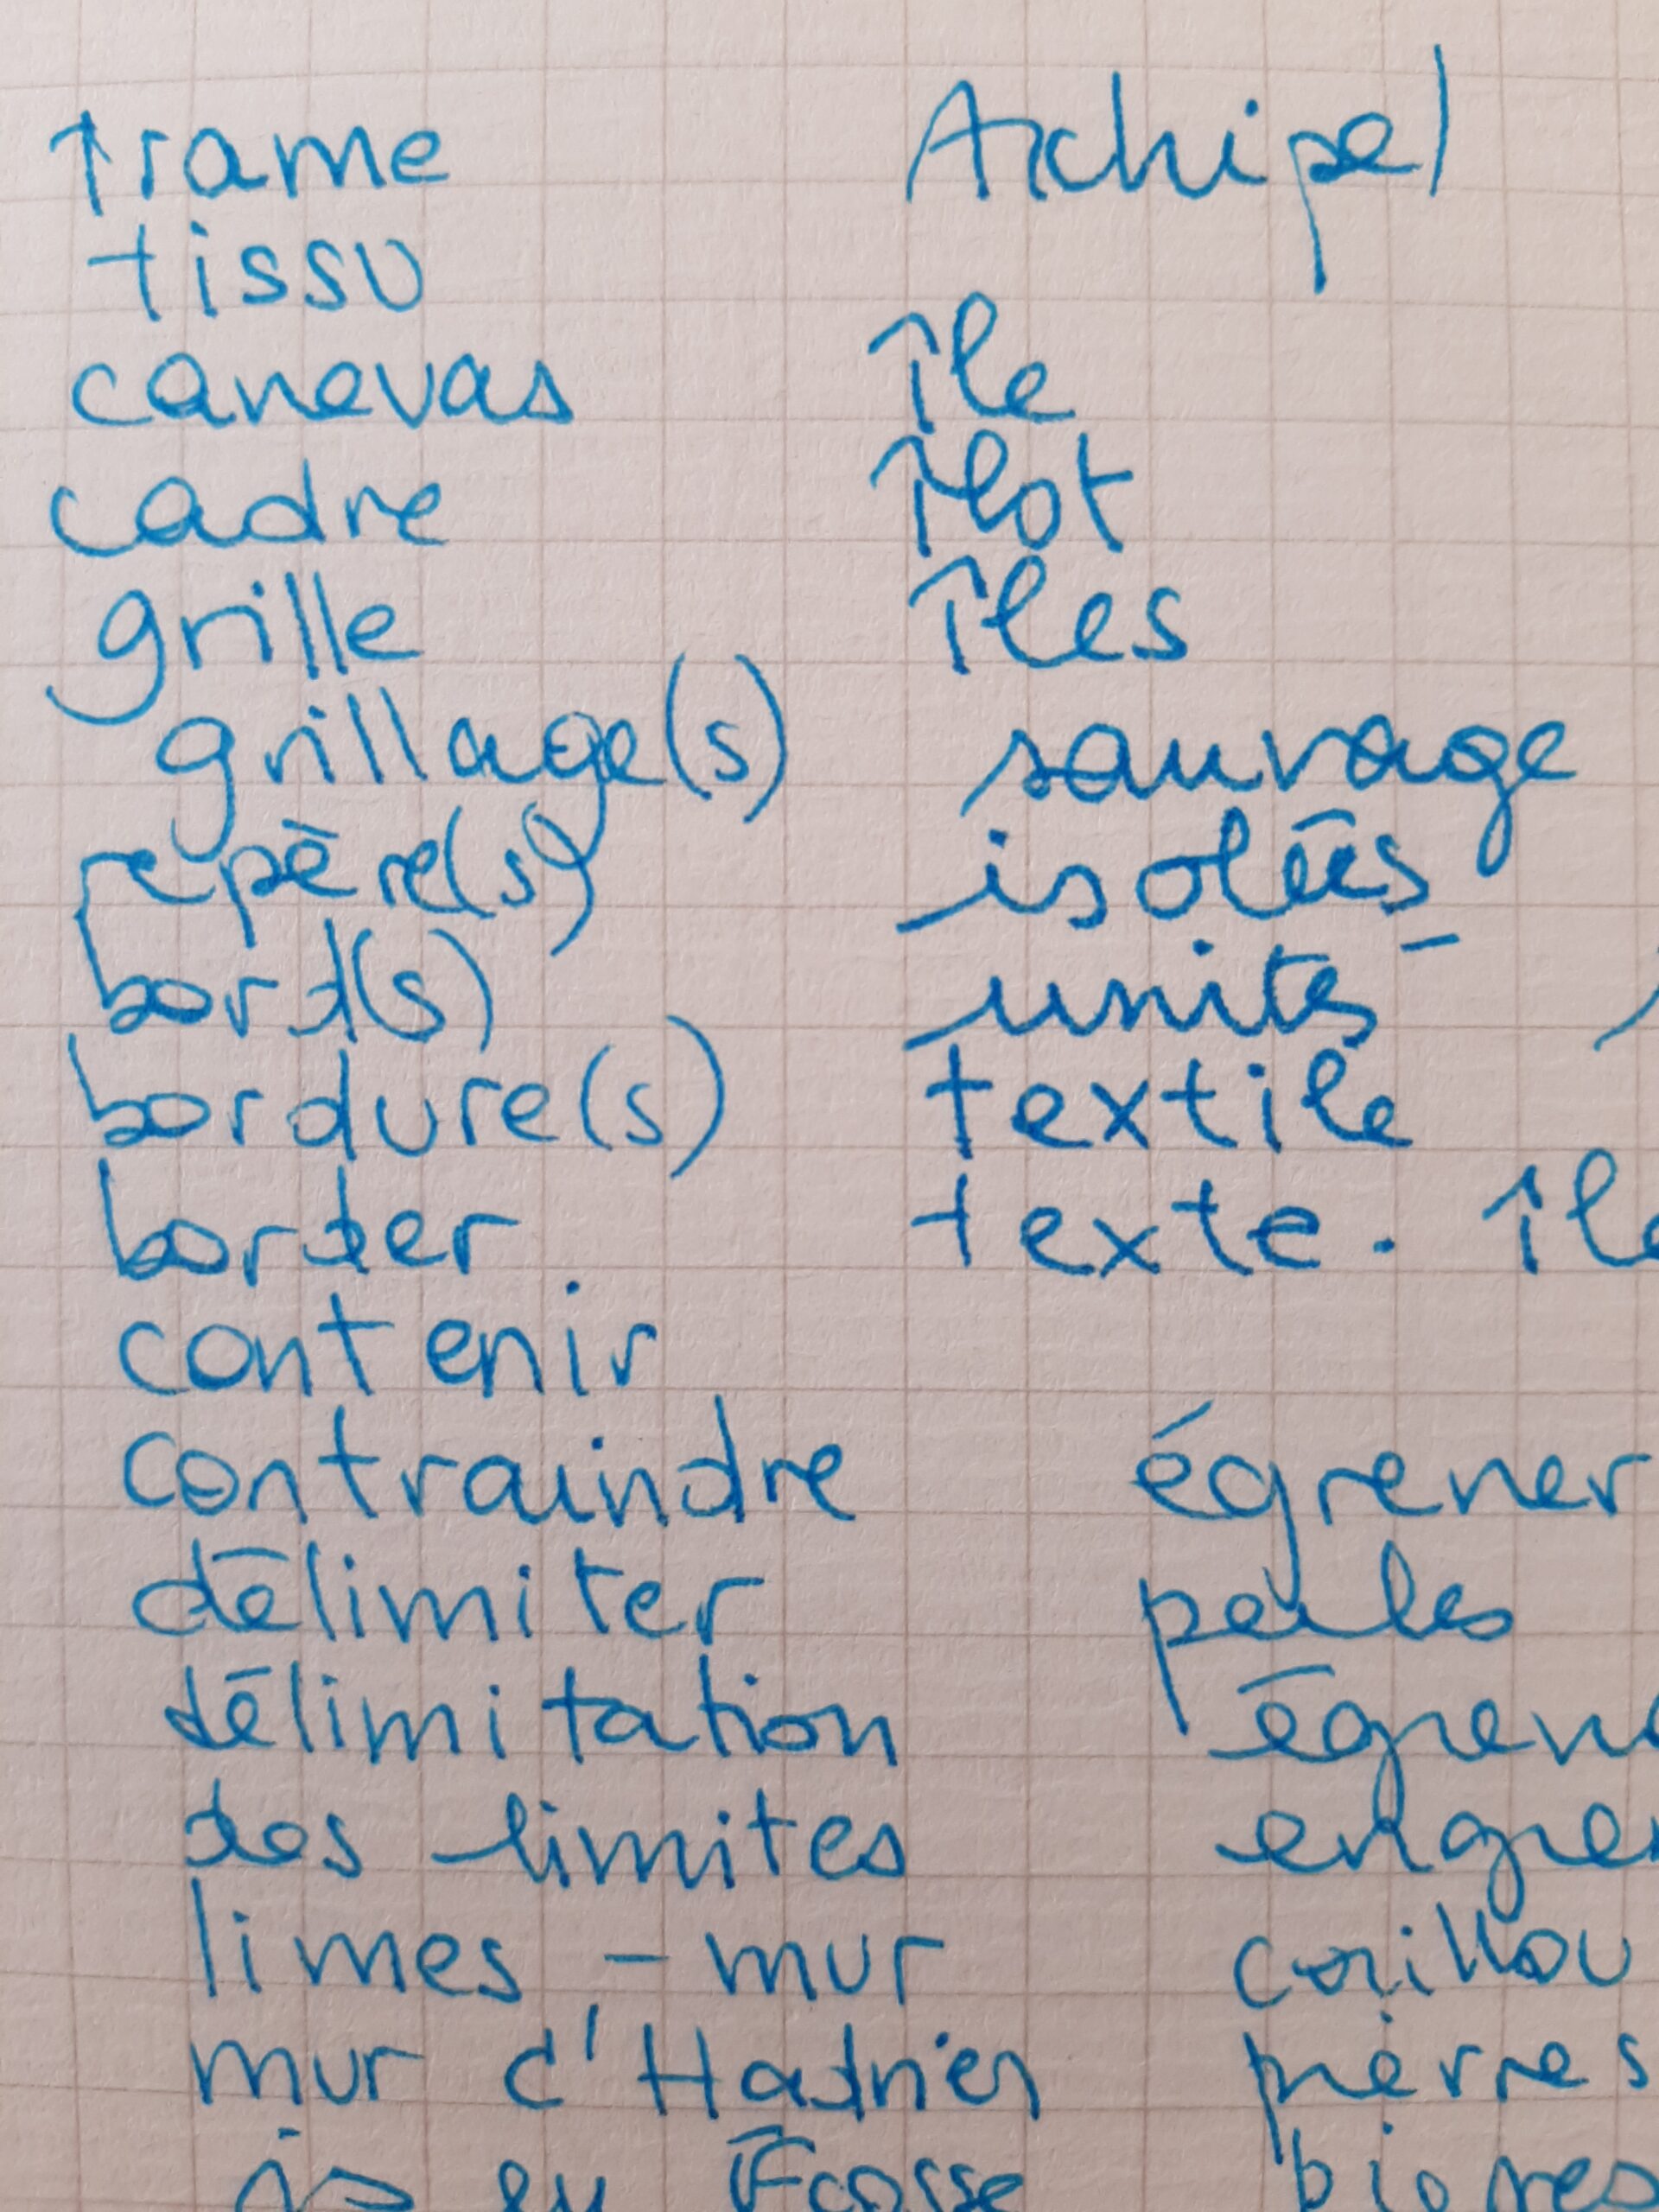 trame
tissu
canevas
cadre
grille
grillage(s)
repère(s)
bord(s)
bordure(s)
border
contenir
contraindre
délimiter
délimitation
des limites
limes, - mur
mur d'Hadrien
en Écosse
Archipel
île
îlot
îles
sauvage
isolés
unités
textile
texte. île
égrener
perles
pierres